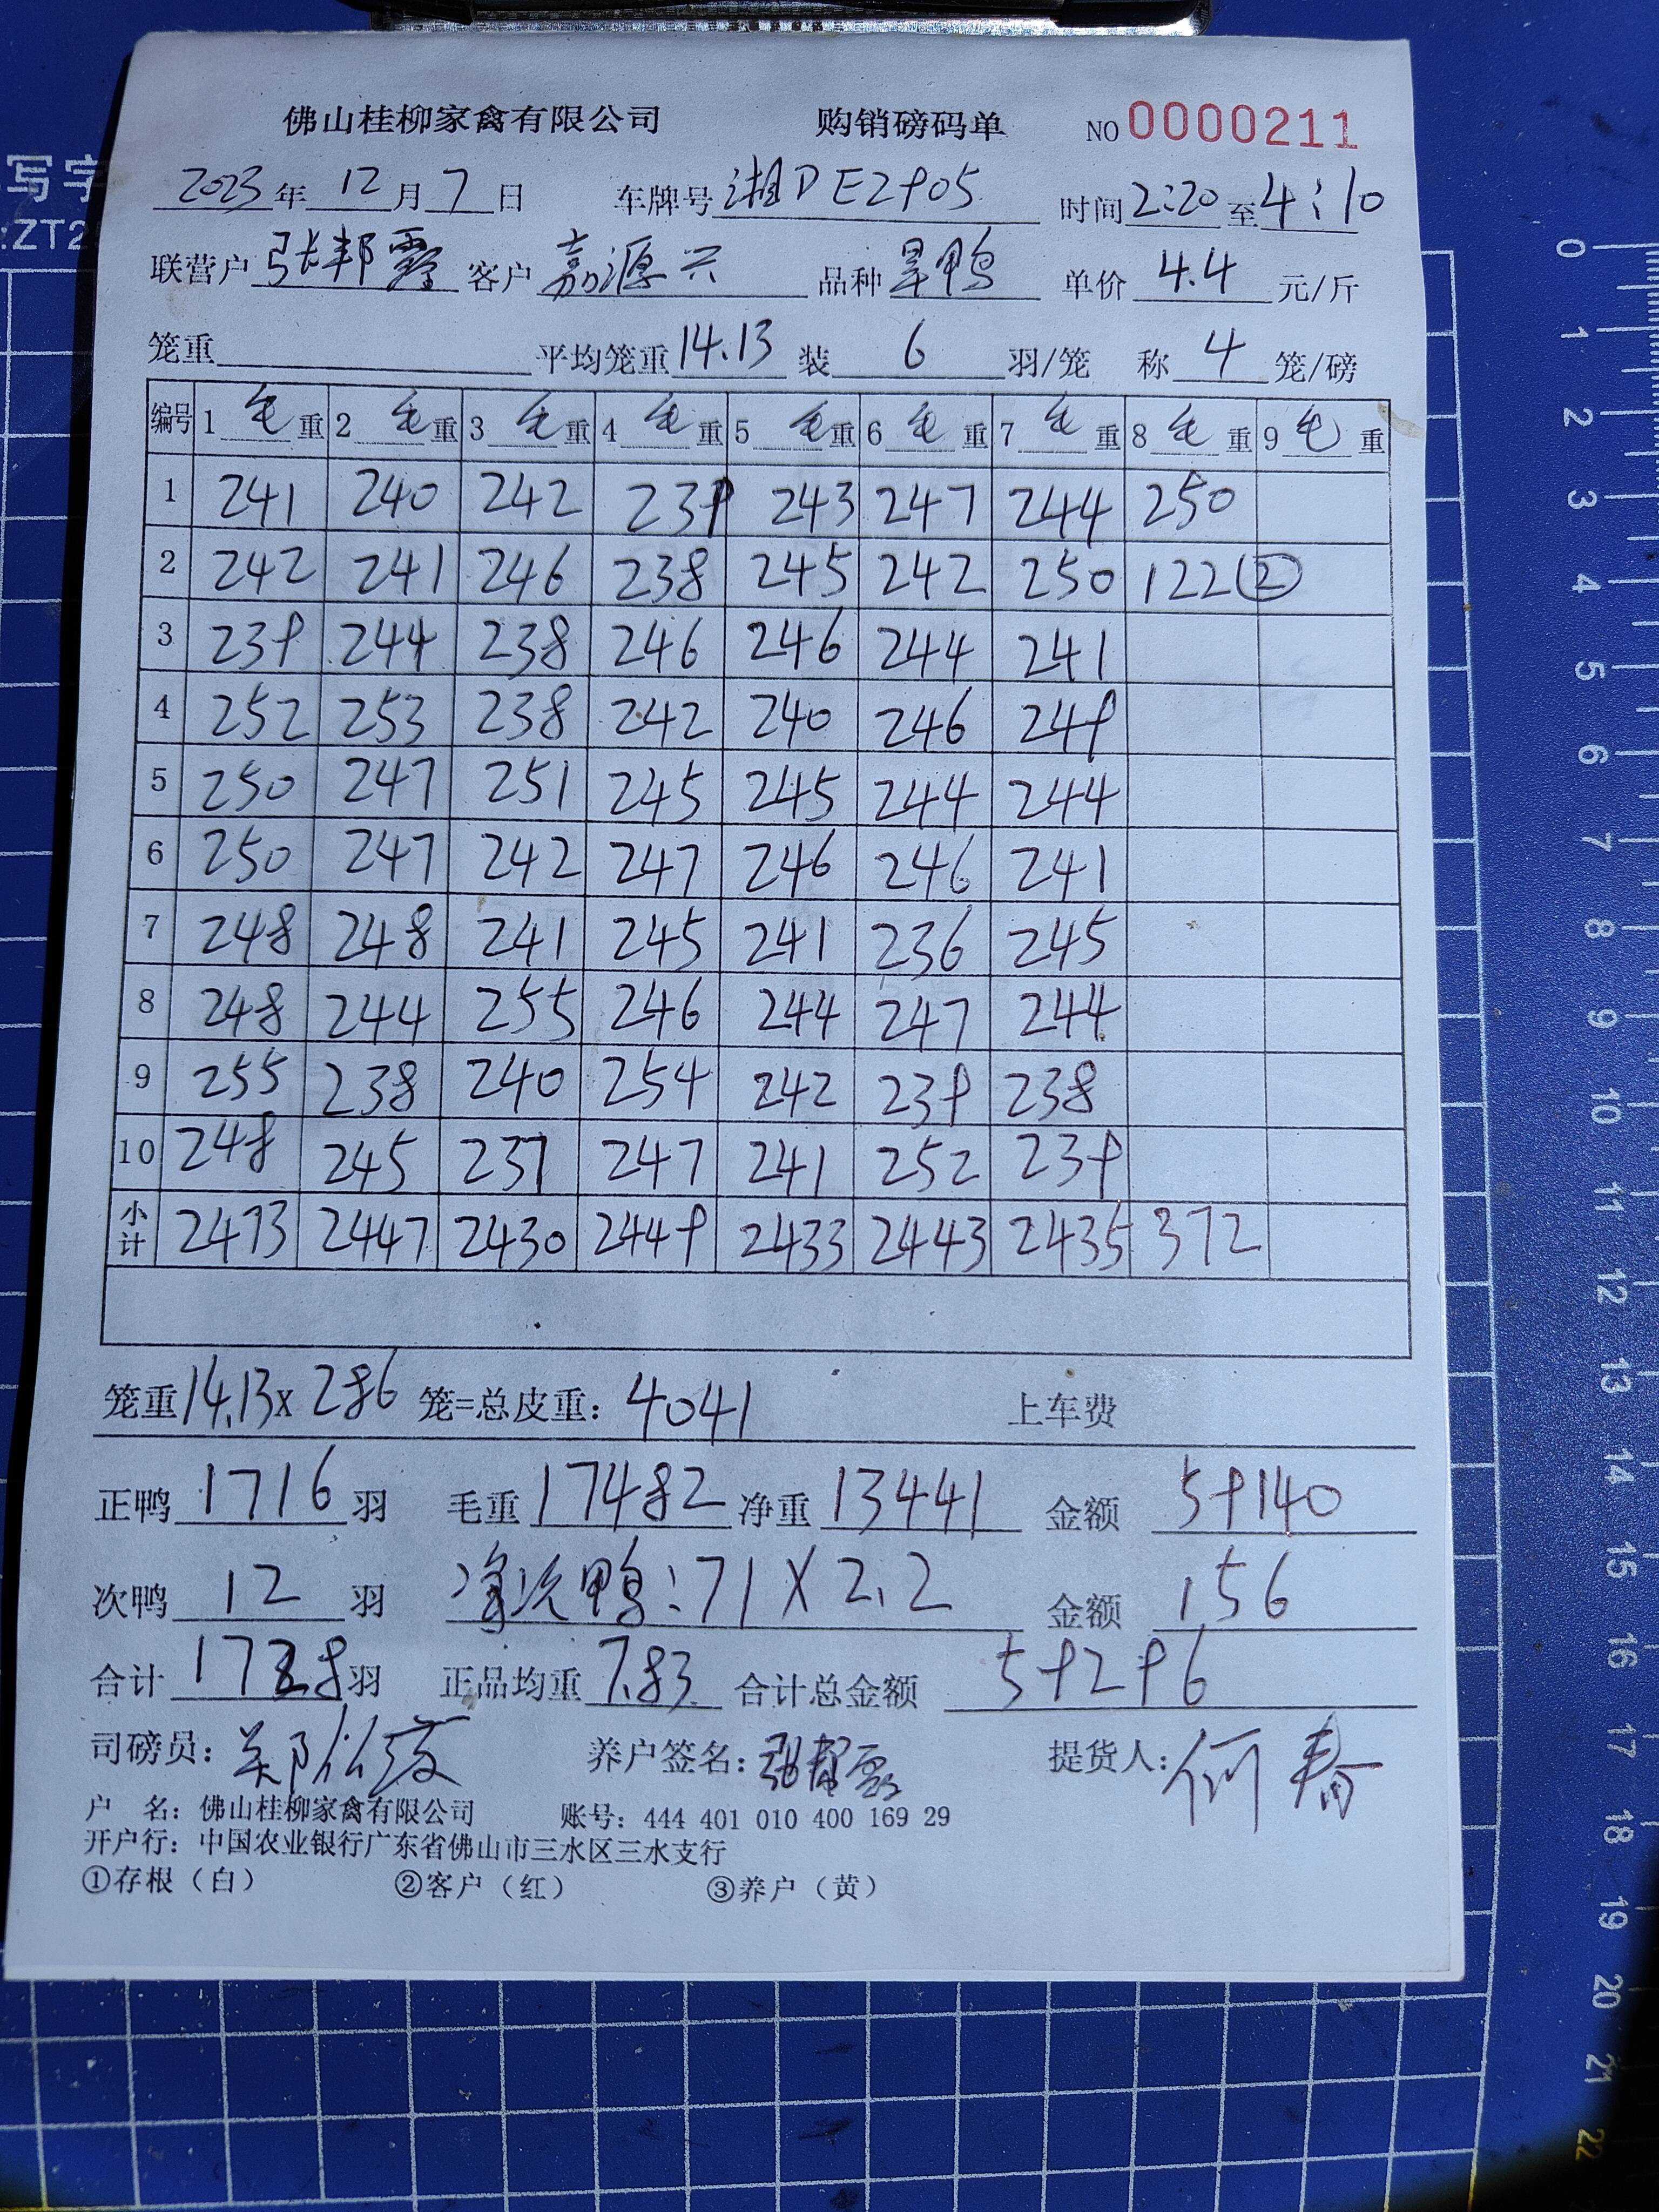 佛山桂柳家禽有限公司 购销磅码单 NO 0000211
2023年12月7日 车牌号 湘DE2905 时间2:20至4:10
联营户 张邦霞 客户 嘉源兴 品种 旱鸭 单价 4.4 元/斤
笼重 平均笼重14.13 装 6 羽/笼 称 4 笼/磅
编号 1毛重 2毛重 3毛重 4毛重 5毛重 6毛重 7毛重 8毛重 9毛重
1 241 240 242 239 243 247 244 250
2 242 241 246 238 245 242 250 122②
3 239 244 238 246 246 244 241
4 252 253 238 242 240 246 249
5 250 247 251 245 245 244 244
6 250 247 242 247 246 246 241
7 248 248 241 245 241 236 245
8 248 244 255 246 244 247 244
9 255 238 240 254 242 239 238
10 248 245 237 247 241 252 239
小计 2473 2447 2430 2449 2433 2443 2435 372
笼重14.13x286 笼=总皮重：4041 上车费
正鸭 1716 羽 毛重 17482 净重 13441 金额 59140
次鸭 12 羽 净次鸭:71X2.2 金额 156
合计 1728羽 正品均重 7.83 合计总金额 59296
司磅员： 养户签名： 提货人：何春
户 名：佛山桂柳家禽有限公司 账号：444 401 010 400 169 29
开户行：中国农业银行广东省佛山市三水区三水支行
①存根（白） ②客户（红） ③养户（黄）
写字
ZT2
0
1
2
3
4
5
6
7
8
9
10
11
12
13
14
15
16
17
18
19
20
21
22